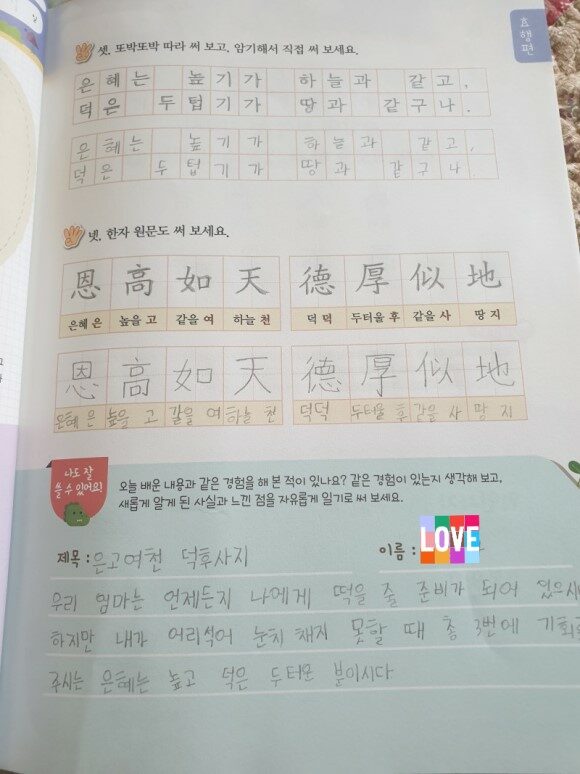 효행편
셋, 또박또박 따라 써 보고, 암기해서 직접 써 보세요.
은혜는 높기가 하늘과 같고,
덕은 두텁기가 땅과 같구나.
은혜는 높기가 하늘과 같고,
덕은 두텁기가 땅과 같구나.
넷, 한자 원문도 써 보세요.
恩高如天 德厚似地
은혜 은 높을 고 같을 여 하늘 천 덕 덕 두터울 후 같을 사 땅 지
恩高如天 德厚似地
은혜 은 높을 고 같을 여 하늘 천 덕덕 두터울 후 같을 사 땅 지
나도 잘
쓸 수 있어요!
오늘 배운 내용과 같은 경험을 해 본 적이 있나요? 같은 경험이 있는지 생각해 보고,
새롭게 알게 된 사실과 느낀 점을 자유롭게 일기로 써 보세요.
제목 : 은고여천 덕후사지 이름 : LOVE
우리 엄마는 언제든지 나에게 떡을 줄 준비가 되어 있으시
하지만 내가 어리석어 눈치 채지 못할 때 총 3번에 기회
주시는 은혜는 높고 덕은 두터운 분이시다